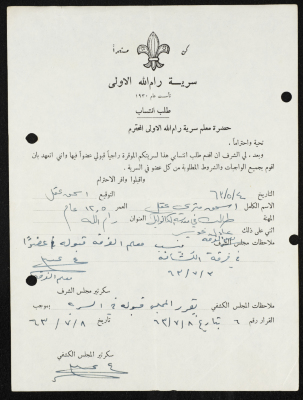 كن مستعداً
سرية رام الله الاولى
تأسست عام ١٩٣٠
طلب انتساب
حضرة معلم سرية رام الله الاولى المحترم
تحية واحتراما،
وبعد، لي الشرف ان اقدم طلب انتسابي هذا لسريتكم الموقرة راجياً قبولي عضواً فيها وانني اتعهد بان
اقوم بجميع الواجبات والشروط المطلوبة من كل عضو في السرية.
واقبلوا وافر الاحترام
التاريخ ٦٣/٥/٤ التوقيع
الاسم الكامل العمر ١٢,٥ عام
المهنة طالب العنوان رام الله
اثني على ذلك
ملاحظات مجلس الفرقة قبوله عضوًا
في فرقة الكشافة
٦٣/٧/٣
معلم الفرقة
سكرتير مجلس الشرف
ملاحظات المجلس الكشفي يقرر المجلس قبوله في السرية بموجب
القرار رقم ٦ بتاريخ ٦٣/٧/٨ تاريخ ٦٣/٧/٨
سكرتير المجلس الكشفي